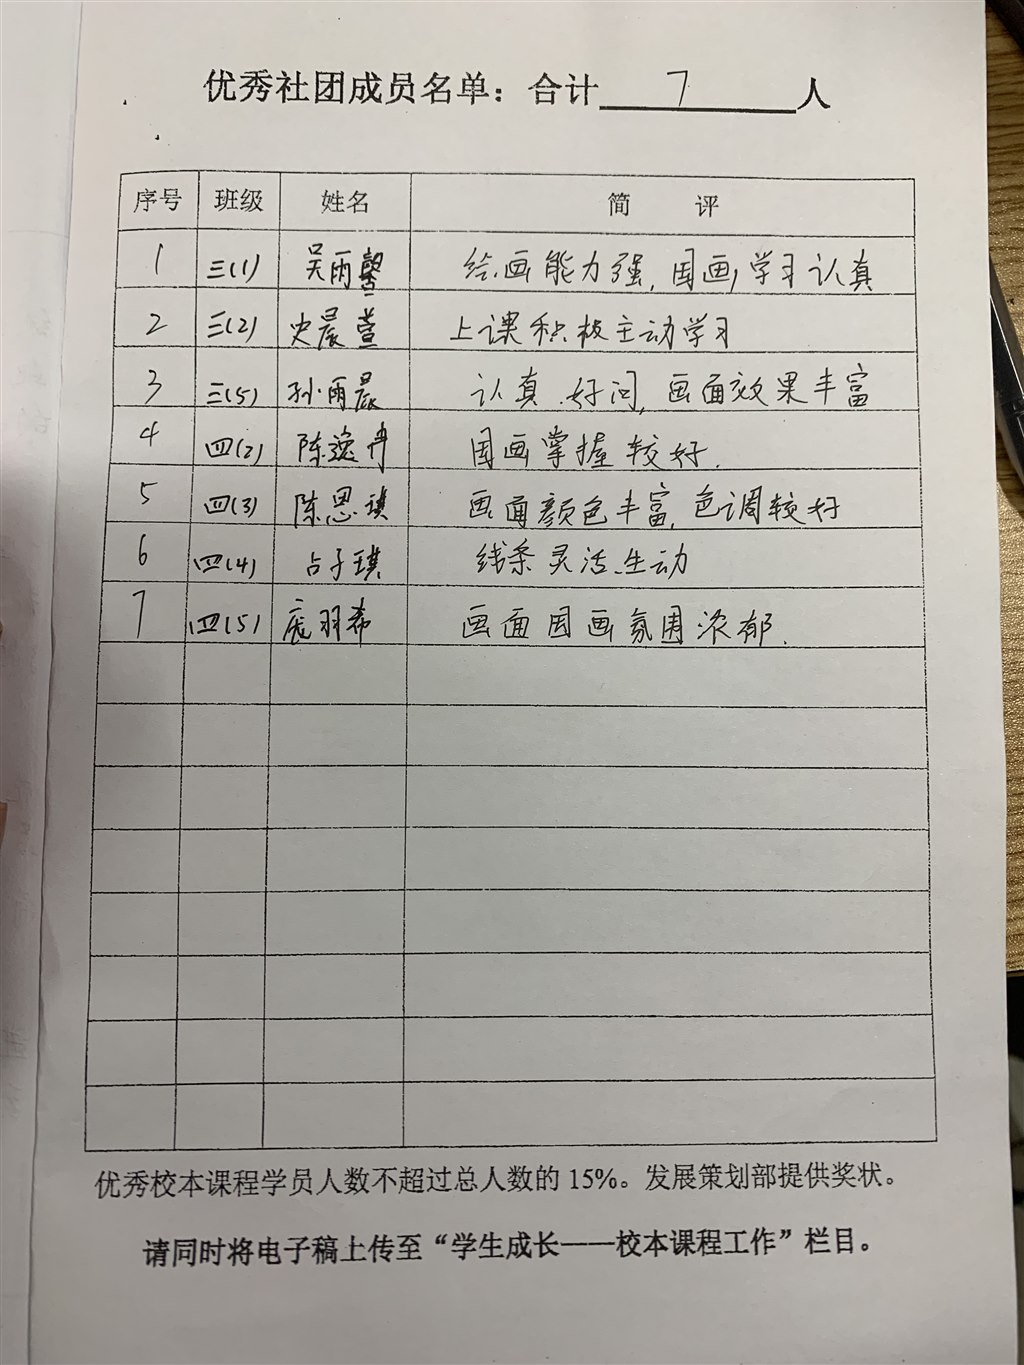 优秀社团成员名单：合计 7 人
序号 班级 姓名 简 评
1 三(1) 吴雨馨 绘画能力强，国画学习认真
2 三(2) 史晨萱 上课积极主动学习
3 三(5) 孙雨晨 认真、好问，画面效果丰富
4 四(2) 陈逸冉 国画掌握较好.
5 四(3) 陈思琪 画面颜色丰富，色调较好
6 四(4) 占子琪 线条灵活、生动
7 四(5) 羽希 画面国画氛围浓郁.
优秀校本课程学员人数不超过总人数的 15%。发展策划部提供奖状。
请同时将电子稿上传至“学生成长——校本课程工作”栏目。